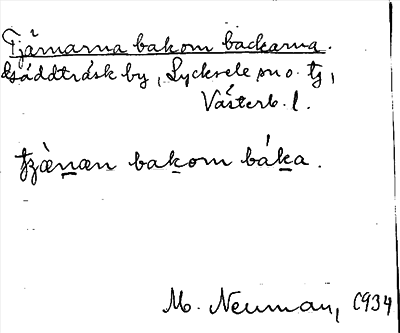 Tjärnarna bakom backarna.
Gäddträsk by, Lycksele sn o. tg,
Västerb. l.
bakom báka.
M. Neuman, 1934